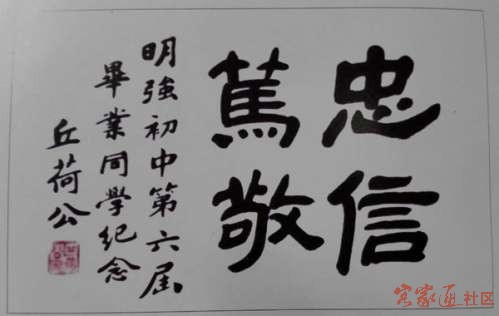 忠信
篤敬
明強初中第六屆
畢業同學紀念
丘荷公
客家通社区